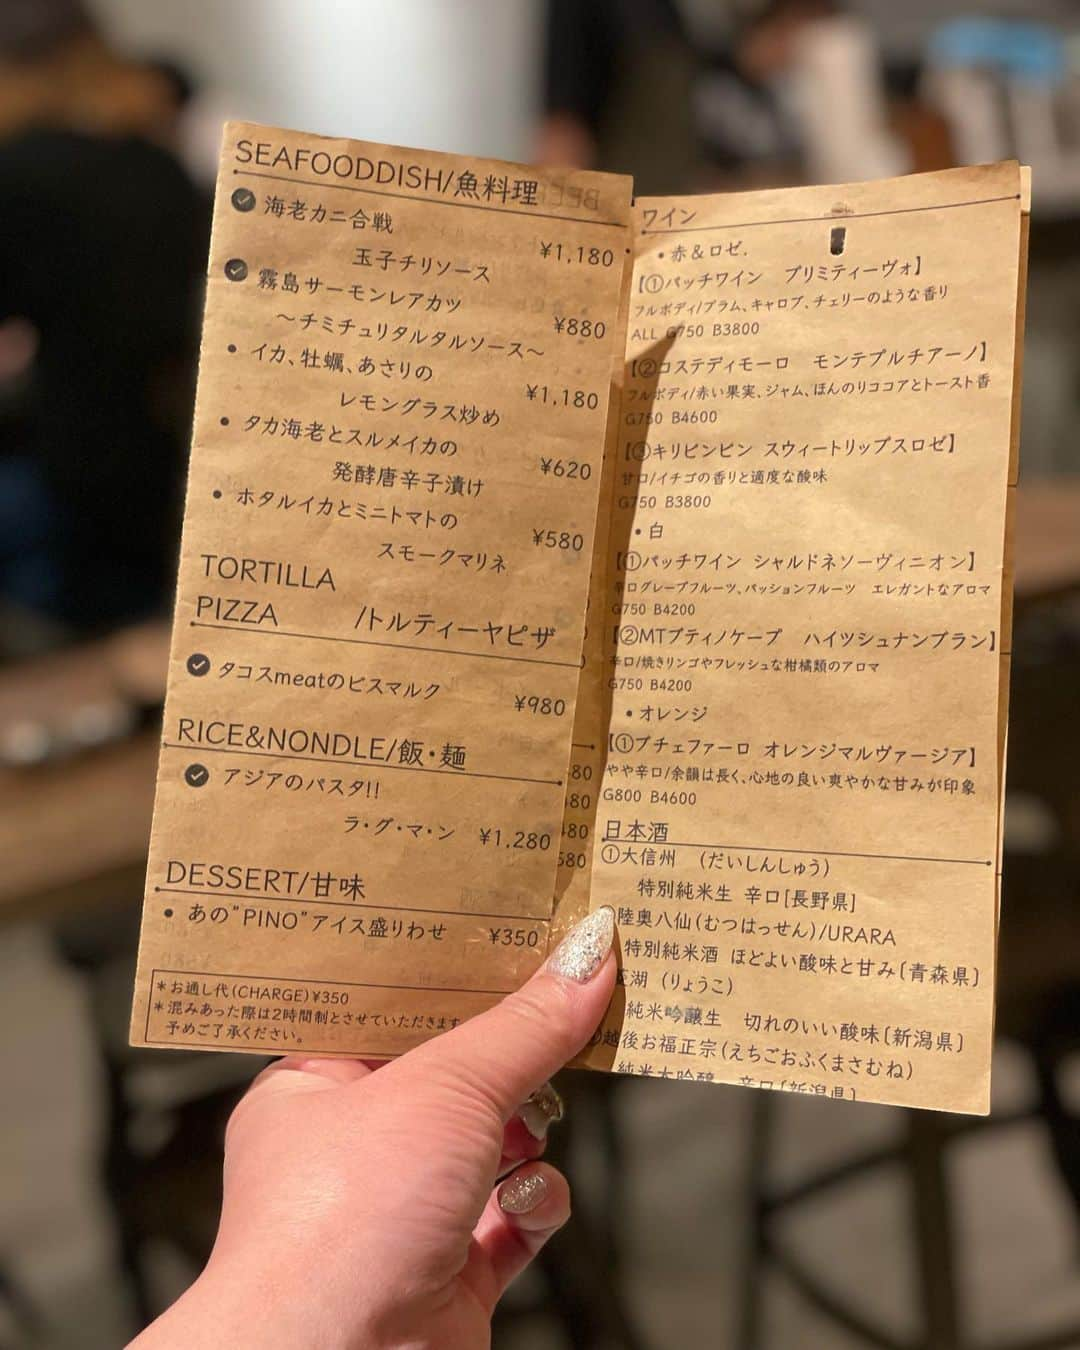 SEAFOODDISH/魚料理
海老カニ合戦
玉子チリソース ¥1,180
霧島サーモンレアカツ
～チミチュリタルタルソース～ ¥880
イカ、牡蠣、あさりの
レモングラス炒め ¥1,180
タカ海老とスルメイカの
発酵唐辛子漬け ¥620
ホタルイカとミニトマトの
スモークマリネ ¥580
TORTILLA
PIZZA /トルティーヤピザ
タコスmeatのビスマルク ¥980
RICE&NONDLE/飯・麺
アジアのパスタ!!
ラ・グ・マ・ン ¥1,280
DESSERT/甘味
あの"PINO"アイス盛りわせ ¥350
＊お通し代(CHARGE)¥350
＊混みあった際は2時間制とさせていただきます
予めご了承ください。
ワイン
・赤&ロゼ.
【①パッチワイン プリミティーヴォ】
フルボディ/プラム、キャロブ、チェリーのような香り
ALL G750 B3800
【②コステディモーロ モンテプルチアーノ】
フルボディ/赤い果実、ジャム、ほんのりココアとトースト香
G750 B4600
【③キリビンビン スウィートリップスロゼ】
甘口/イチゴの香りと適度な酸味
G750 B3800
・白
【①パッチワイン シャルドネソーヴィニオン】
辛口グレープフルーツ、パッションフルーツ エレガントなアロマ
G750 B4200
【②MTプティノケープ ハイツシュナンブラン】
辛口/焼きリンゴやフレッシュな柑橘類のアロマ
G750 B4200
・オレンジ
【①プチェファーロ オレンジマルヴァージア】
やや辛口/余韻は長く、心地の良い爽やかな甘みが印象
G800 B4600
日本酒
①大信州 (だいしんしゅう)
特別純米生 辛口[長野県]
陸奥八仙(むつはっせん)/URARA
特別純米酒 ほどよい酸味と甘み〔青森県〕
湖 (りょうこ)
純米吟醸生 切れのいい酸味〔新潟県〕
越後お福正宗(えちごおふくまさむね)
純米大吟醸 辛口[新潟県]